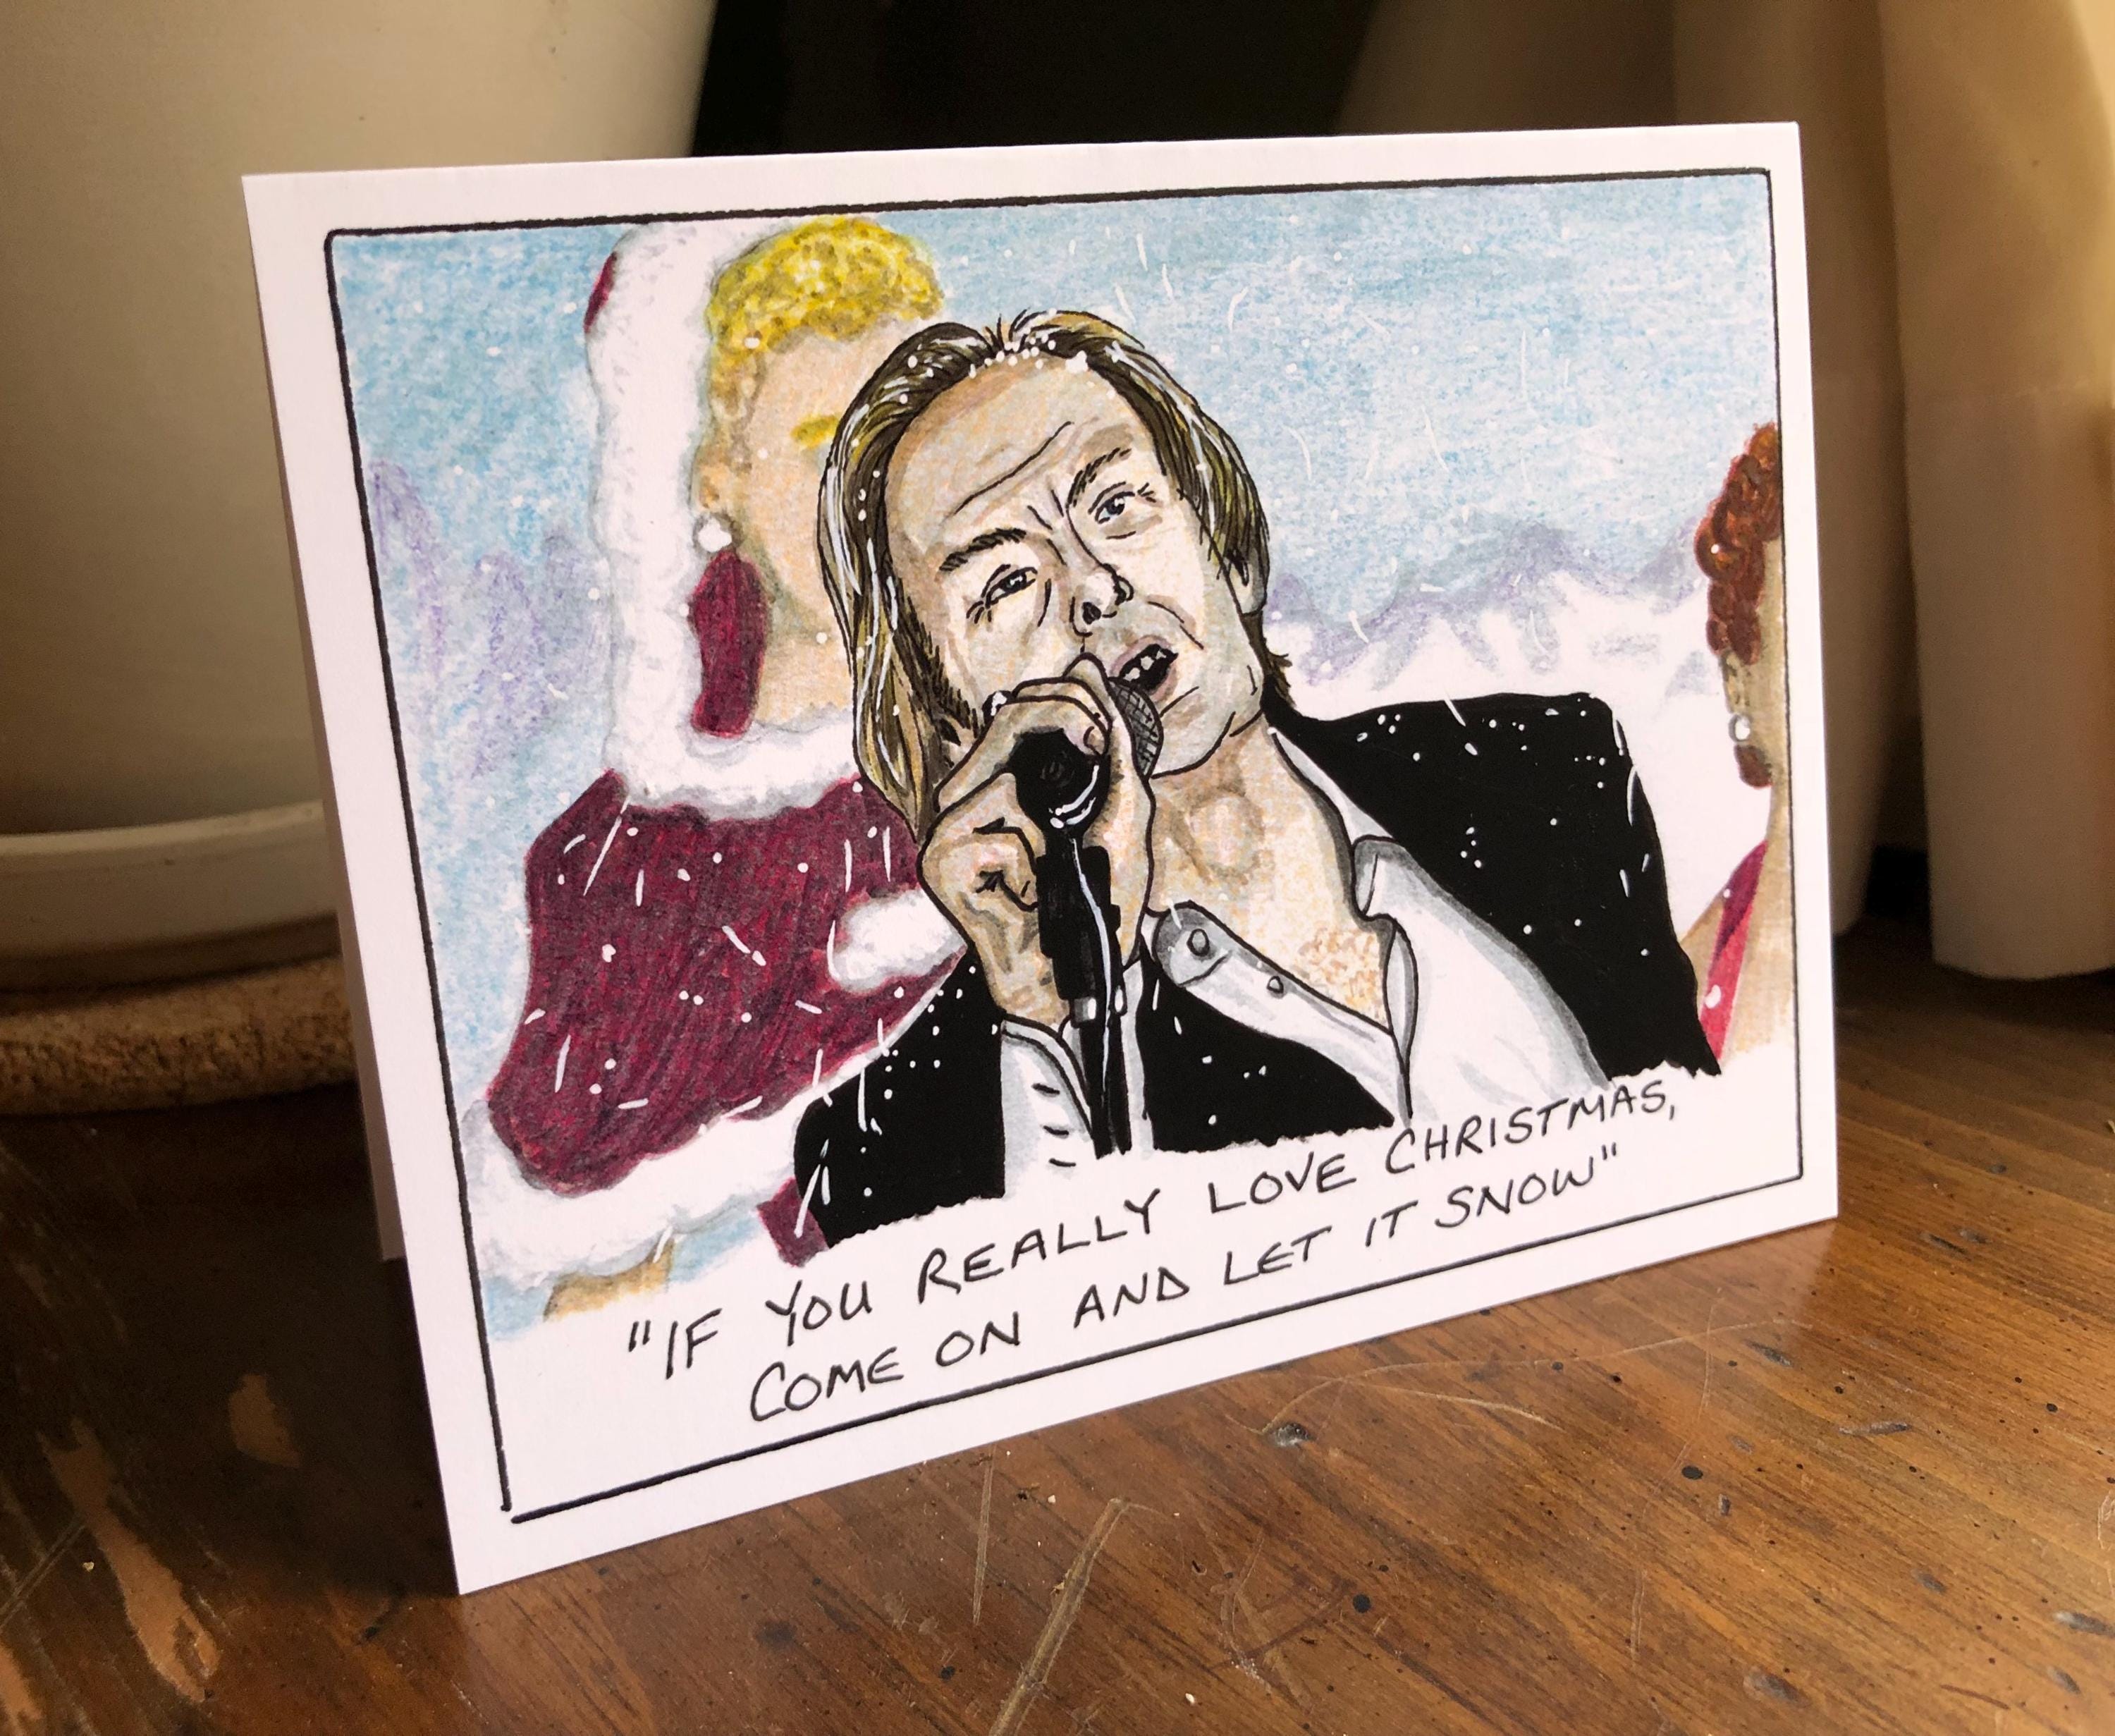 "IF YOU REALLY LOVE CHRISTMAS,
COME ON AND LET IT SNOW"